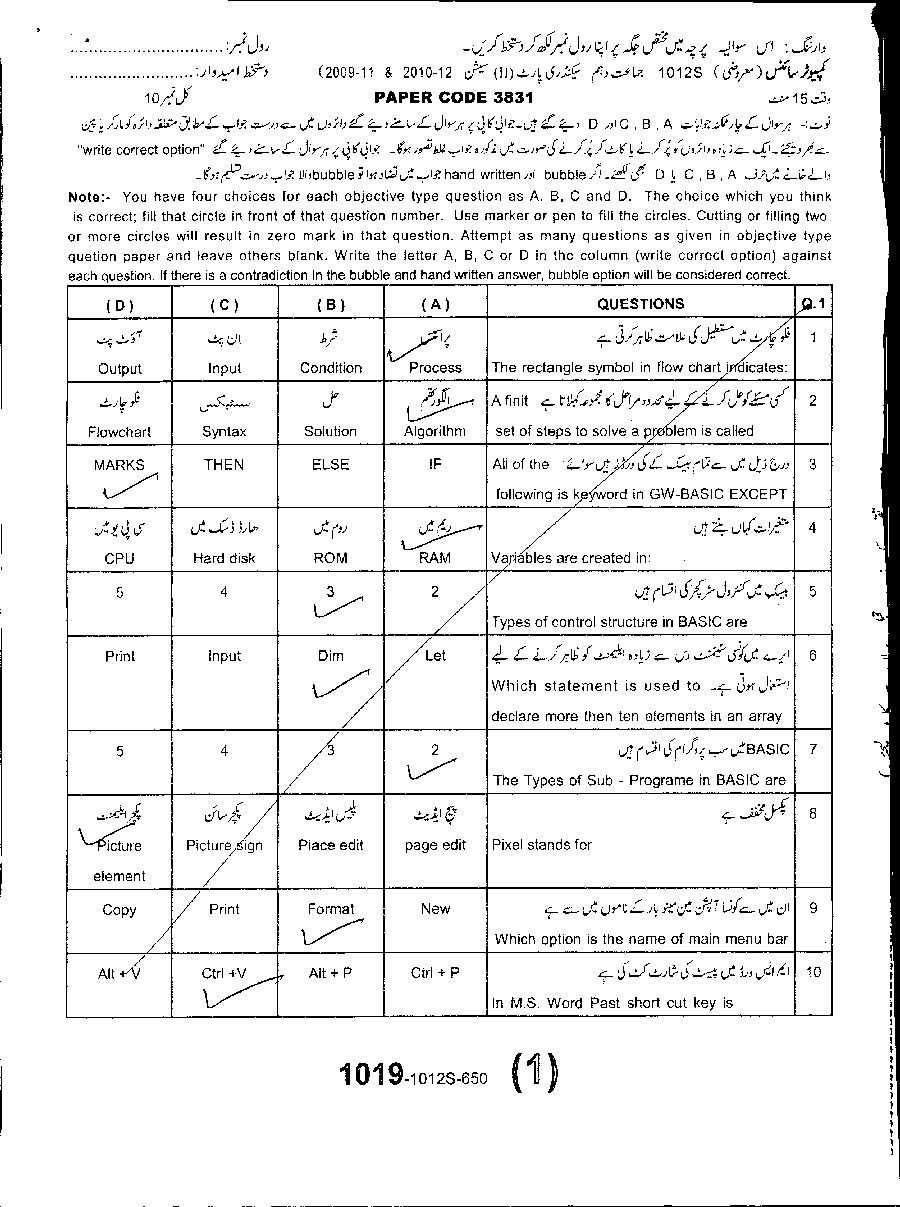 وارننگ: اس سوالیہ پرچہ میں مختص جگہ پر اپنا رول نمبر لکھ کر دستخط کریں۔ رول نمبر:
کمپیوٹر سائنس (معروضی) 1012S جماعت دہم سیکنڈری پارٹ (II) سیشن (2009-11 & 2010-12 دستخط امیدوار:
وقت 15 منٹ PAPER CODE 3831 کل نمبر 10
نوٹ:- ہر سوال کے چار ممکنہ جوابات A , B , C اور D دیے گئے ہیں۔ جوابی کاپی پر ہر سوال کے سامنے دیے گئے دائروں میں سے درست جواب کے مطابق متعلقہ دائرہ کو مارکر یا پین
سے بھر دیجئے۔ ایک سے زیادہ دائروں کو پُر کرنے یا کاٹ کر پُر کرنے کی صورت میں مذکورہ جواب غلط تصور ہوگا۔ جوابی کاپی پر ہر سوال کے سامنے دیے گئے "write correct option"
والے خانے میں حرف A , B , C یا D بھی لکھئے۔ اگر bubble اور hand written جواب میں تضاد ہوا تو bubble والا جواب درست تسلیم ہوگا۔
Note:- You have four choices for each objective type question as A, B, C and D. The choice which you think
is correct; fill that circle in front of that question number. Use marker or pen to fill the circles. Cutting or filling two
or more circles will result in zero mark in that question. Attempt as many questions as given in objective type
quetion paper and leave others blank. Write the letter A, B, C or D in the column (write correct option) against
each question. If there is a contradiction in the bubble and hand written answer, bubble option will be considered correct.
(D) (C) (B) (A) QUESTIONS Q.1
آؤٹ پٹ ان پٹ شرط پراسس فلو چارٹ میں مستطیل کی علامت ظاہر کرتی ہے 1
Output Input Condition Process The rectangle symbol in flow chart indicates:
فلو چارٹ سینٹیکس حل الگورتھم A finit کسی مسئلے کو حل کرنے کے لیے محدود مراحل کا مجموعہ کہلاتا ہے 2
Flowchart Syntax Solution Algorithm set of steps to solve a problem is called
MARKS THEN ELSE IF All of the درج ذیل میں سے تمام بیسک کے کی ورڈز ہیں سوائے 3
following is keyword in GW-BASIC EXCEPT
سی پی یو میں ہارڈ ڈسک میں روم میں ریم میں متغیرات کہاں بنتے ہیں 4
CPU Hard disk ROM RAM Variables are created in:
5 4 3 2 بیسک میں کنٹرول سٹرکچر کی اقسام ہیں 5
Types of control structure in BASIC are
Print Input Dim Let ایرے میں کونسی سٹیٹمنٹ دس سے زیادہ ایلیمنٹ کو ظاہر کرنے کے لیے 6
Which statement is used to استعمال ہوتی ہے۔
declare more then ten elements in an array
5 4 3 2 BASIC میں سب پروگرام کی اقسام ہیں 7
The Types of Sub - Programe in BASIC are
پکچر ایلیمنٹ پکچر سائن پلیس ایڈیٹ پیج ایڈیٹ پکسل مخفف ہے 8
Picture Picture sign Place edit page edit Pixel stands for
element
Copy Print Format New ان میں سے کونسا آپشن مین مینو بار کے ناموں میں سے ہے 9
Which option is the name of main menu bar
Alt +V Ctrl +V Alt + P Ctrl + P ایم ایس ورڈ میں پیسٹ کی شارٹ کٹ کی ہے 10
In M.S. Word Past short cut key is
1019-1012S-650 (1)